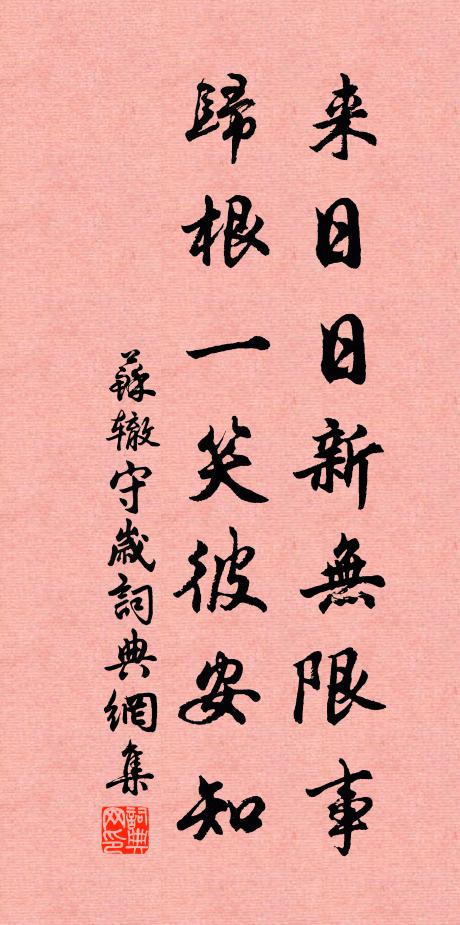 来日日新無限事
歸根一笑彼安知
蘇辙守歲詞典網集
詞典网印